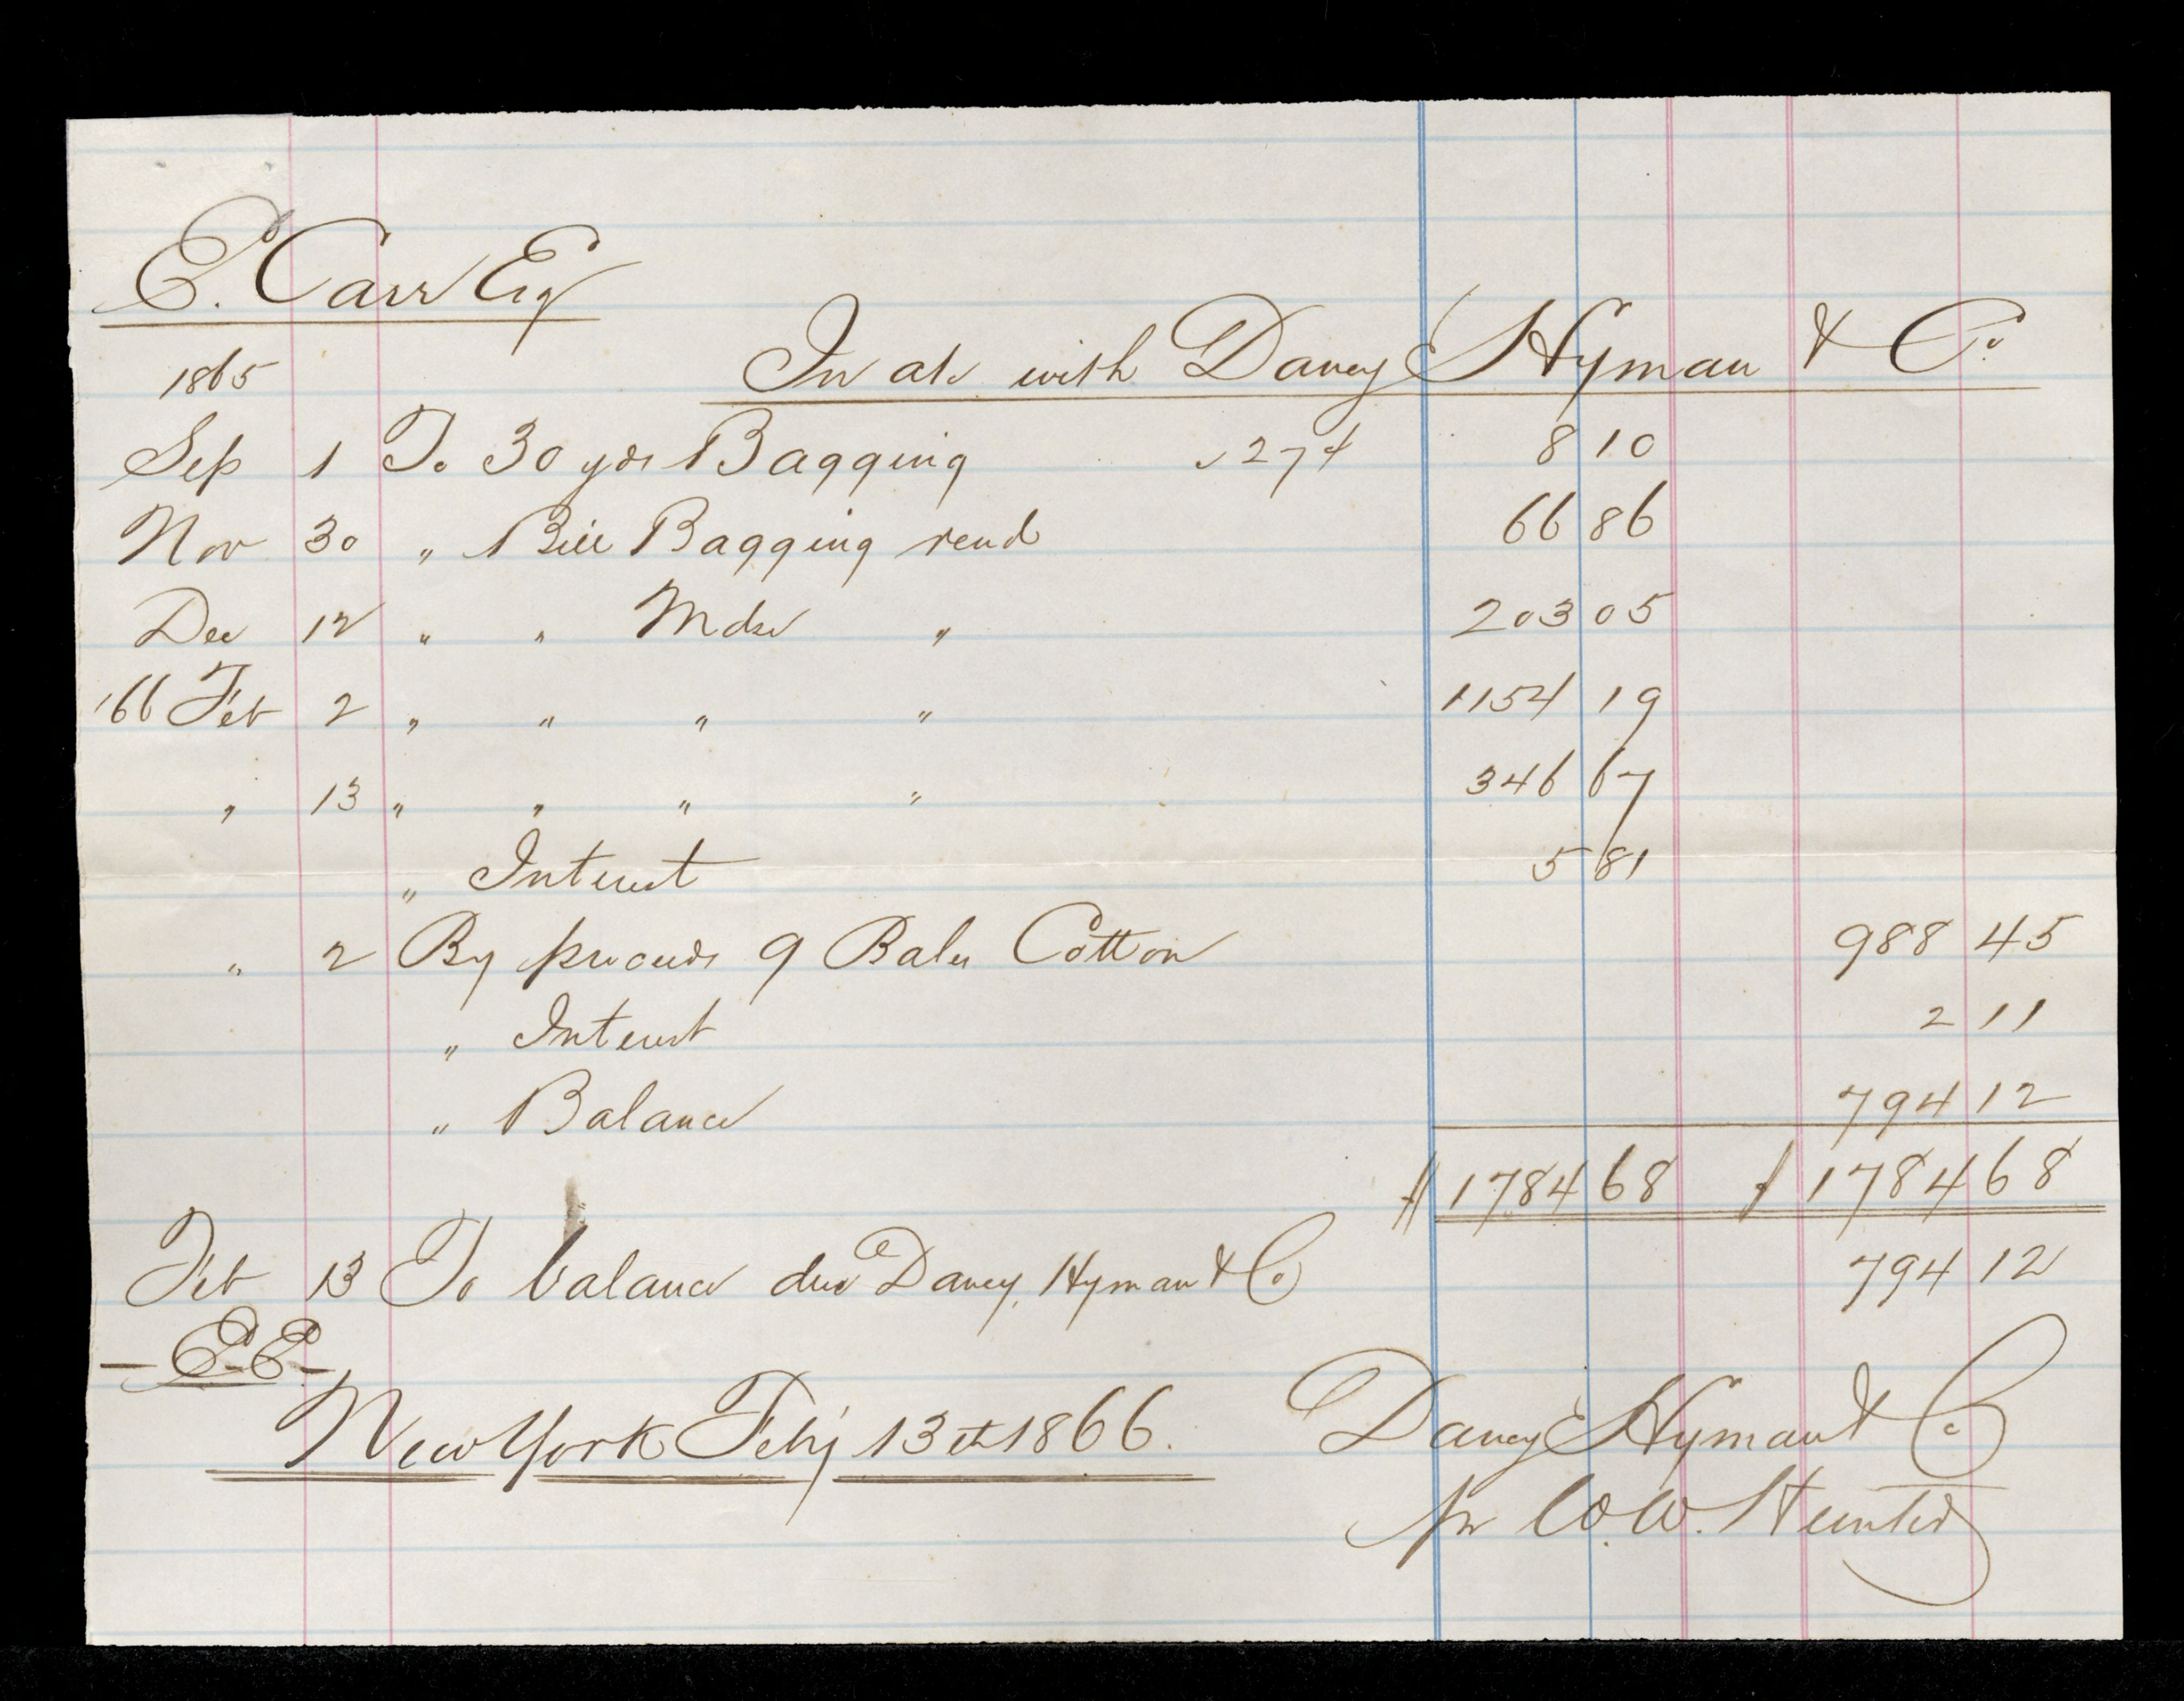 E. Carr Esq
In a/c with Dancy Hyman & Co.
1865
Sep 1 To 30 yds Bagging 27¢ 8 10
Nov 30 " Bill Bagging rend 66 86
Dec 12 " " Mdse " 203 05
'66 Feb 2 " " " " 1154 19
" 13 " " " " 346 67
" Interest 5 81
" 2 By proceeds 9 Bales Cotton 988 45
" Interest 2 11
" Balance 794 12
$1784 68 $1784 68
Feb 13 To balance due Dancy, Hyman & Co 794 12
- E.E -
New York Feby 13th 1866.
Dancy Hyman & Co
pr W.W. Hunted